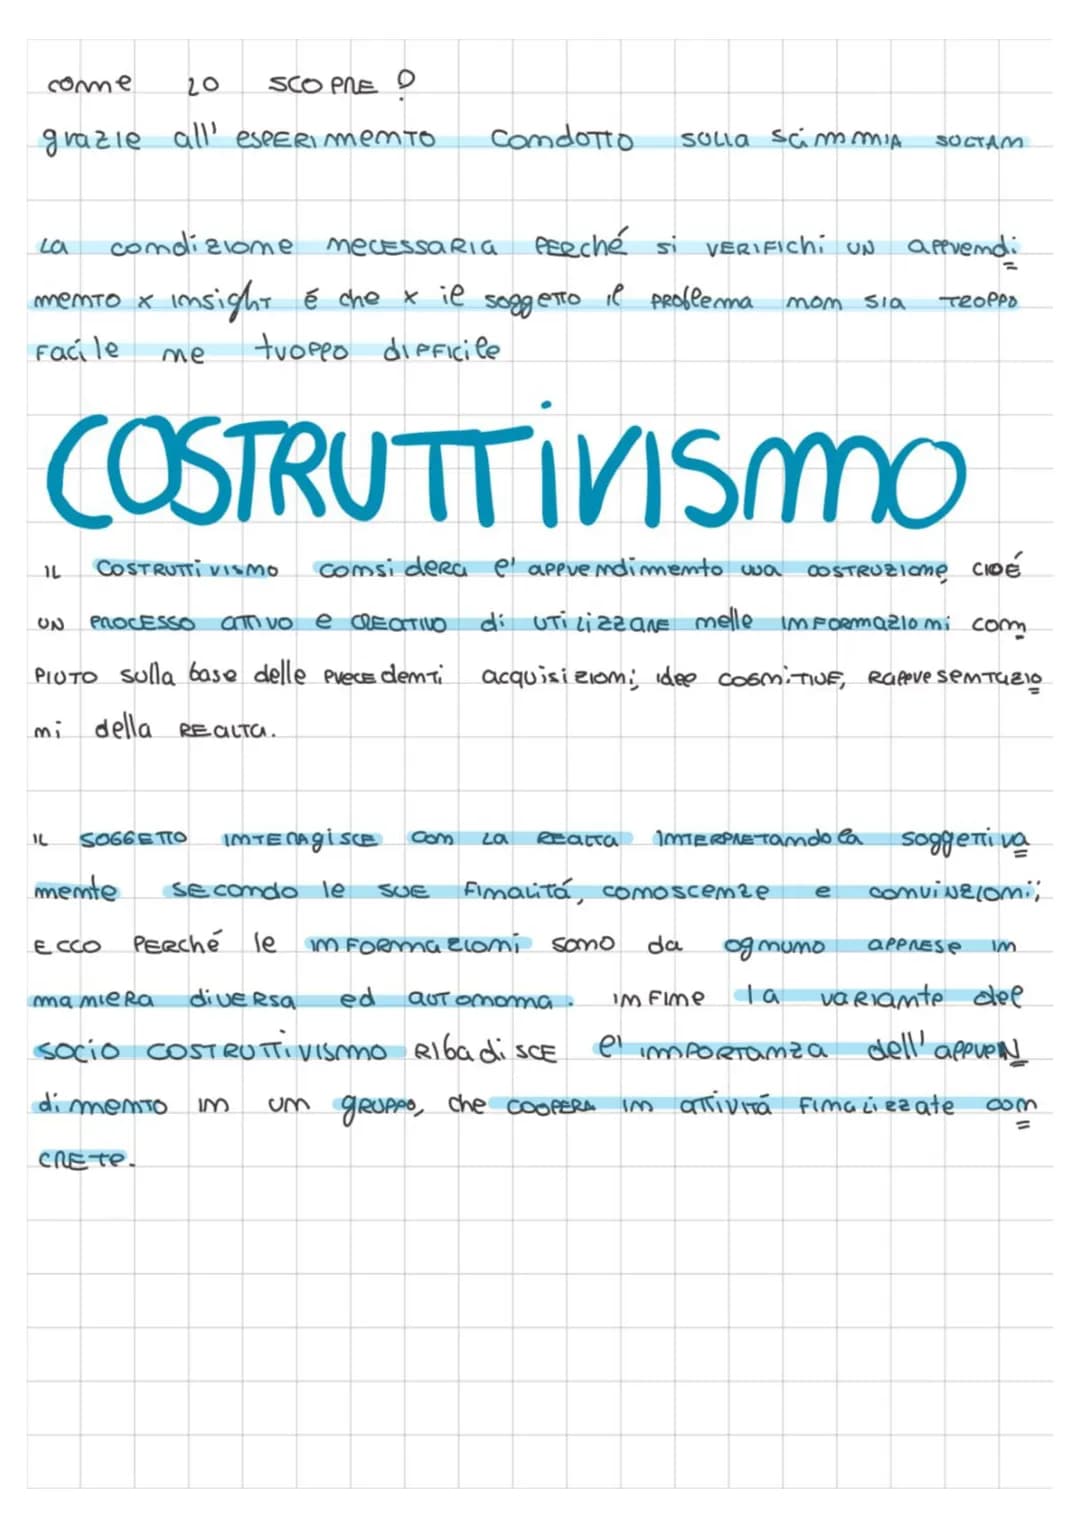 come lo SCOPRE ?
grazie all' esperimento condotto sulla scimmia SOLTAM
La condizione necessaria perché si verifichi un apprendi
mento x insight é che x il soggetto il problema non sia troppo
facile ne troppo difficile
COSTRUTTIVISMO
IL COSTRUTTIVISMO considera l' apprendimento una costruzione, cioé
UN PROCESSO attivo e CREATIVO di utilizzare nelle informazioni com
PIUTO sulla base delle precedenti acquisizioni, idee cognitive, rappresentazio
ni della REALTA.
IL SOGGETTO interagisce con la realta interpretandola soggettiva
mente secondo le sue finalitá, conoscenze e convinzioni;
ECCO PERché le informazioni sono da ognuno apprese in
maniera diversa ed autonoma. infine la variante del
socio COSTRUTTIVISMO Ribadisce l' importanza dell' appren
dimento in un gruppo, che coopera in attivitá finalizzate con
crete.